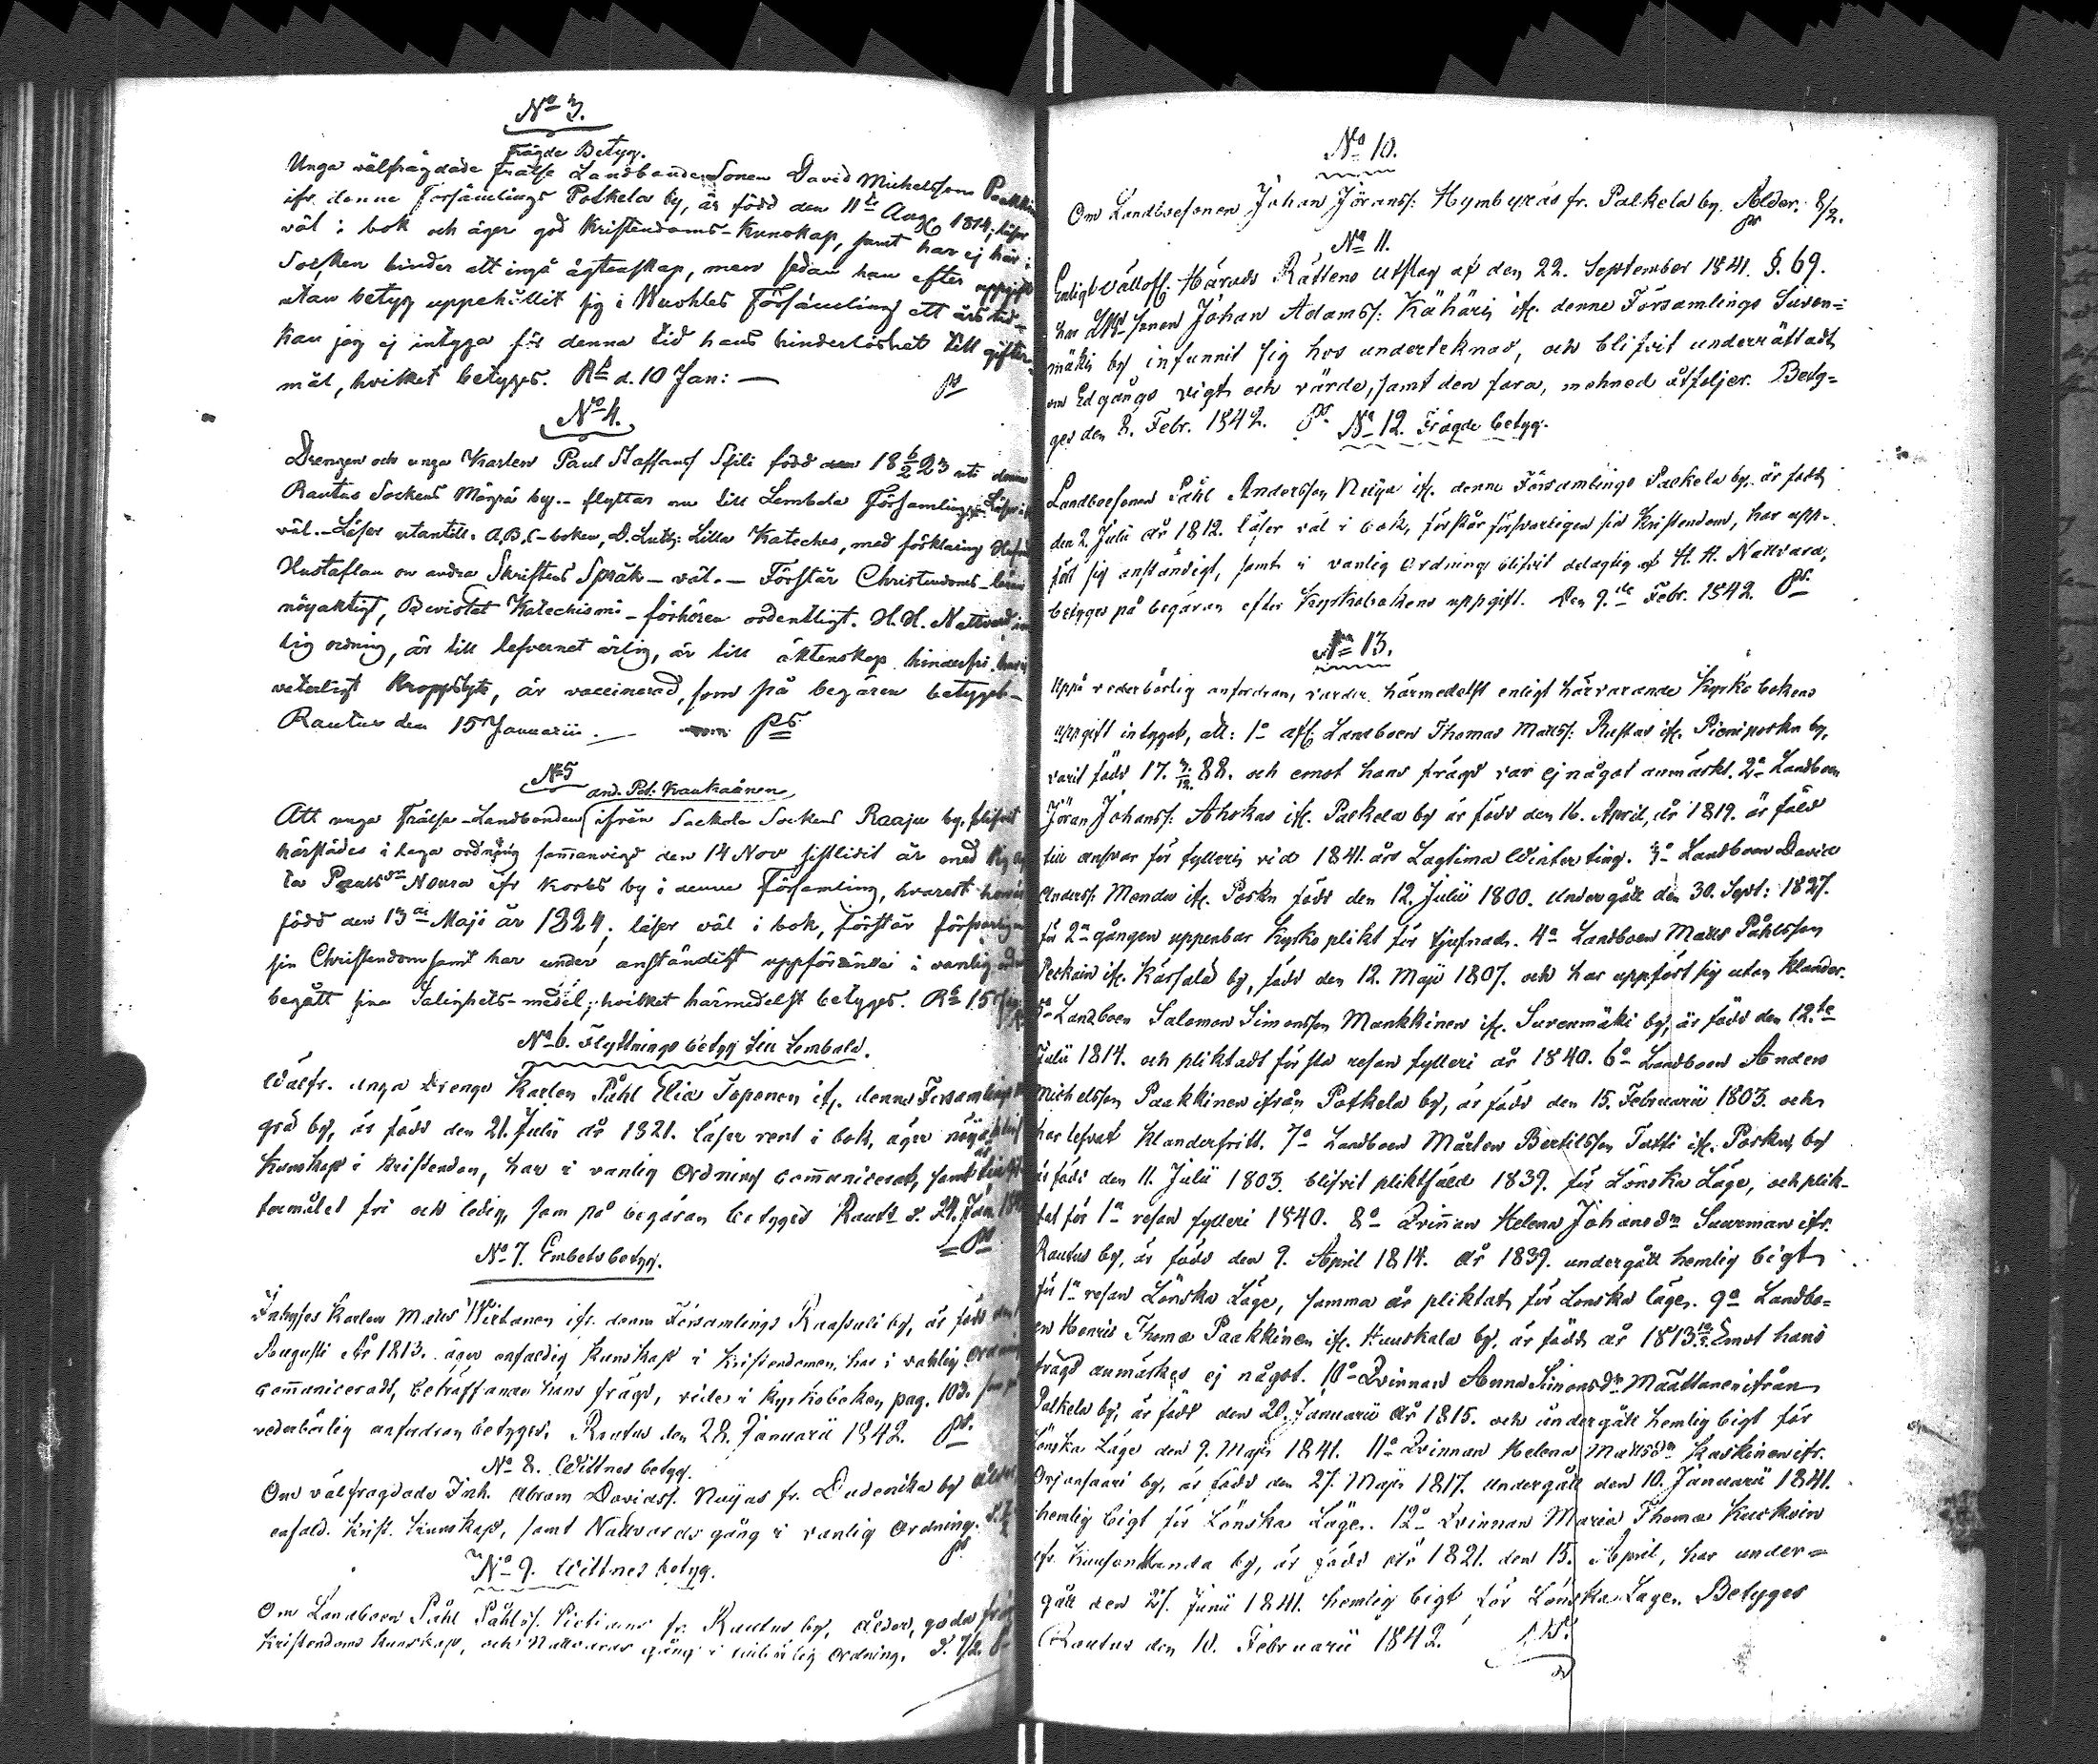 No 3.
Frägde Betyg.
Unga välfrägdade Frälse Landbonde Sonen David Michelsson Paakkinen
ifr. denne Församlings Potkela by, är född den 11te Aug 1814, läser
väl i bok och äger god Kristendoms-Kunskap, samt har ej här i
Socken hinder att ingå ägtenskap, men sedan han efter uppgift
utan betyg uppehållit sig i Wuohles Församling ett års tid -
kan jag ej intyga för denna tid hans hinderlöshet till gifter-
mål, hvilket betyges. Rt d. 10 Jan: — ps
No 4.
Drengen och unga Karlen Paul Staffans Spili född den 18 6/2 23 uti denne
Rautus Sockens Mägrä by. - flyttar nu till Lembola Församling. Läser
väl. - Läser utantill: A,B,C-boken, D. Luth: Lilla Kateches, med förklaring
Hustaflan och andra Skriftens Språk - väl. - Förstår Christendoms-läran
nöyaktigt, Bevistat Katechismi-förhören ordentligt. H.H. Nattvard i
lig ordning, är till lefvernet ärlig, är till äktenskap hinderfri,
veterligt Kroppslyte, är vaccinerad, som på begäran betyges -
Rautus den 15 Januarii. — ps
No 5
and. Pet: Kaukaånen
Att unga Frälse-Landbonden ifrån Sackola Sockens Raaju by, blifvit
härstädes i laga ordning sammanvigd den 14 Nov sistlidit år med
Paulsdr Noura ifr Korbs by i denne Församling, hvarest
född den 13de Maji år 1824; läser väl i bok, förstår försvarligen
sin Christendom samt har under anständigt uppförande i vanlig
begått sina Salighets-medel; hvilket härmedelst betyges. Rt 15
No 6. Flyttnings betyg till Lembala.
Wälfr. unga Drenge Karlen Påhl Elia Toponen ifr. denne Församlings
grä by, är född den 21. Julii år 1821. läser rent i bok, äger nöyaktig
Kunskap i Kristendom, har i vanlig Ordning communicerat, samt är till
termålet fri och ledig, som på begäran betyges Rauts d. 24. Jan. 184
ps
No 7. Embets betyg.
Inhyses Karlen Mats Wirtanen ifr. denne Församlings Raasuli by, är född den
Augusti År 1813. äger enfaldig kunskap i Kristendomen, har i vanlig Ordning
communiceradt, beträffande hans frägd, vides i Kyrkoboken pag. 103.
vederbörlig anfordran betyges, Rautus den 28. Januarii 1842. ps.
No 8. Wittnes betyg.
Om välfragdade Inh. Abram Davidss. Nuijas fr. Dudenika by ålder
enfald. Krist. Kunskap, samt Nattvards gång i vanlig Ordning.
ps
No 9. Wittnes betyg.
Om Landboen Påhl Påhlss. Pietians fr. Rautus by, ålder, goda
Kristendoms Kunskap, och Nattvards gång i vanlig Ordning. d. 7/2.
No 10.
Om Landboesonen Johan Jöranss: Hymbyräs fr. Palkela by. Ålder. 8/2.
ps
No 11.
Enligt Vällofl. Härads Rättens Utslag af den 22. September 1841. §. 69.
har Johan Adamss: Kähäri ifr. denne Församlings Suven=
mäki by infunnit sig hos undertecknad, och blifvit underrättadt
om Edgångs vigt och värde, samt den fara, mehned åtföljer. Bety=
ges den 8. Febr. 1842. ps. No 12. Frägde betyg.
Landboesonen Påhl Andersson Nuija ifr. denne Församlings Palkela by, är född
den 2. Julii år 1812. läser väl i bok, förstår försvarligen sin Kristendom, har upp-
fört sig anständigt, samt i vanlig Ordning blifvit delagtig af H. H. Nattvard,
betyges på begäran efter Kyrkobokens uppgift. Den 9.de Febr. 1842. ps
No 13.
Uppå vederbörlig anfordran, varder härmedelst enligt härvarande Kyrko bokens
uppgift intygat, att: 1o Landboen Thomas Matss: Rustas ifr. Pieniporkn by,
varit född 17. 3/12. 88. och emot hans frägd var ej något anmärkt. 2o Landboen
Jöran Johanss: Ahokas ifr. Palkela by är född den 16. April, år 1819. är fäld
till ansvar för fylleri vid 1841. års Lagtima Winterting. 3o Landboen David
Anderss. Mondu ifr. Porkn född den 12. Julii 1800. Undergått den 30. Sept: 1827.
för 2a gången uppenbar Kyrko plikt för tjufnad. 4o Landboen Mats Påhlsson
Peckoin ifr. Kärsälä by, född den 12. Maji 1807. och har uppfört sig utan klander.
5o Landboen Salomon Simonsson Mankkinen ifr. Suvenmäki by, är född den 12.te
Julii 1814. och pliktadt första resan fylleri år 1840. 6o Landboen Anders
Michelsson Paakkinen ifrån Potkela by, är född den 15. Februarii 1803. och
har lefvat klanderfritt. 7o Landboen Mårten Bertilsson Tatti ifr. Porkn by
är född den 11. Julii 1803. blifvit pliktfäld 1839. för Lönska Läge, och plik-
tat för 1a resan fylleri 1840. 8o Qvinnan Helena Johansdr Suurman ifr.
Rautus by, är född den 9. April 1814. År 1839. undergått hemlig bigt
för 1a resan Lönska Läge, samma år pliktat för Lönska läge. 9o Landbo=
en Henric Thoma Paakkinen ifr. Huuskala by, är född år 1813. Emot hans
frägd anmärkes ej något. 10o Qvinnan Anna Simonsdr Määttänen ifrån
Palkela by, är född den 20. Januarii år 1815. och undergått hemlig bigt för
Lönska Läge den 9. Maji 1841. 11o Qvinnan Helena Mattsdr Kaskinen ifr.
Orjansaari by, är född den 27. Maji 1817. undergått den 10. Januarii 1841.
hemlig bigt för Lönska Läge. 12o Qvinnan Maria Thoma Kuckoin
ifr. Kuusenkanda by, är född år 1821. den 15. April, har under=
gått den 27. Junii 1841. hemlig bigt för Lönska Läge. Betyges
Rautus den 10. Februarii 1842.